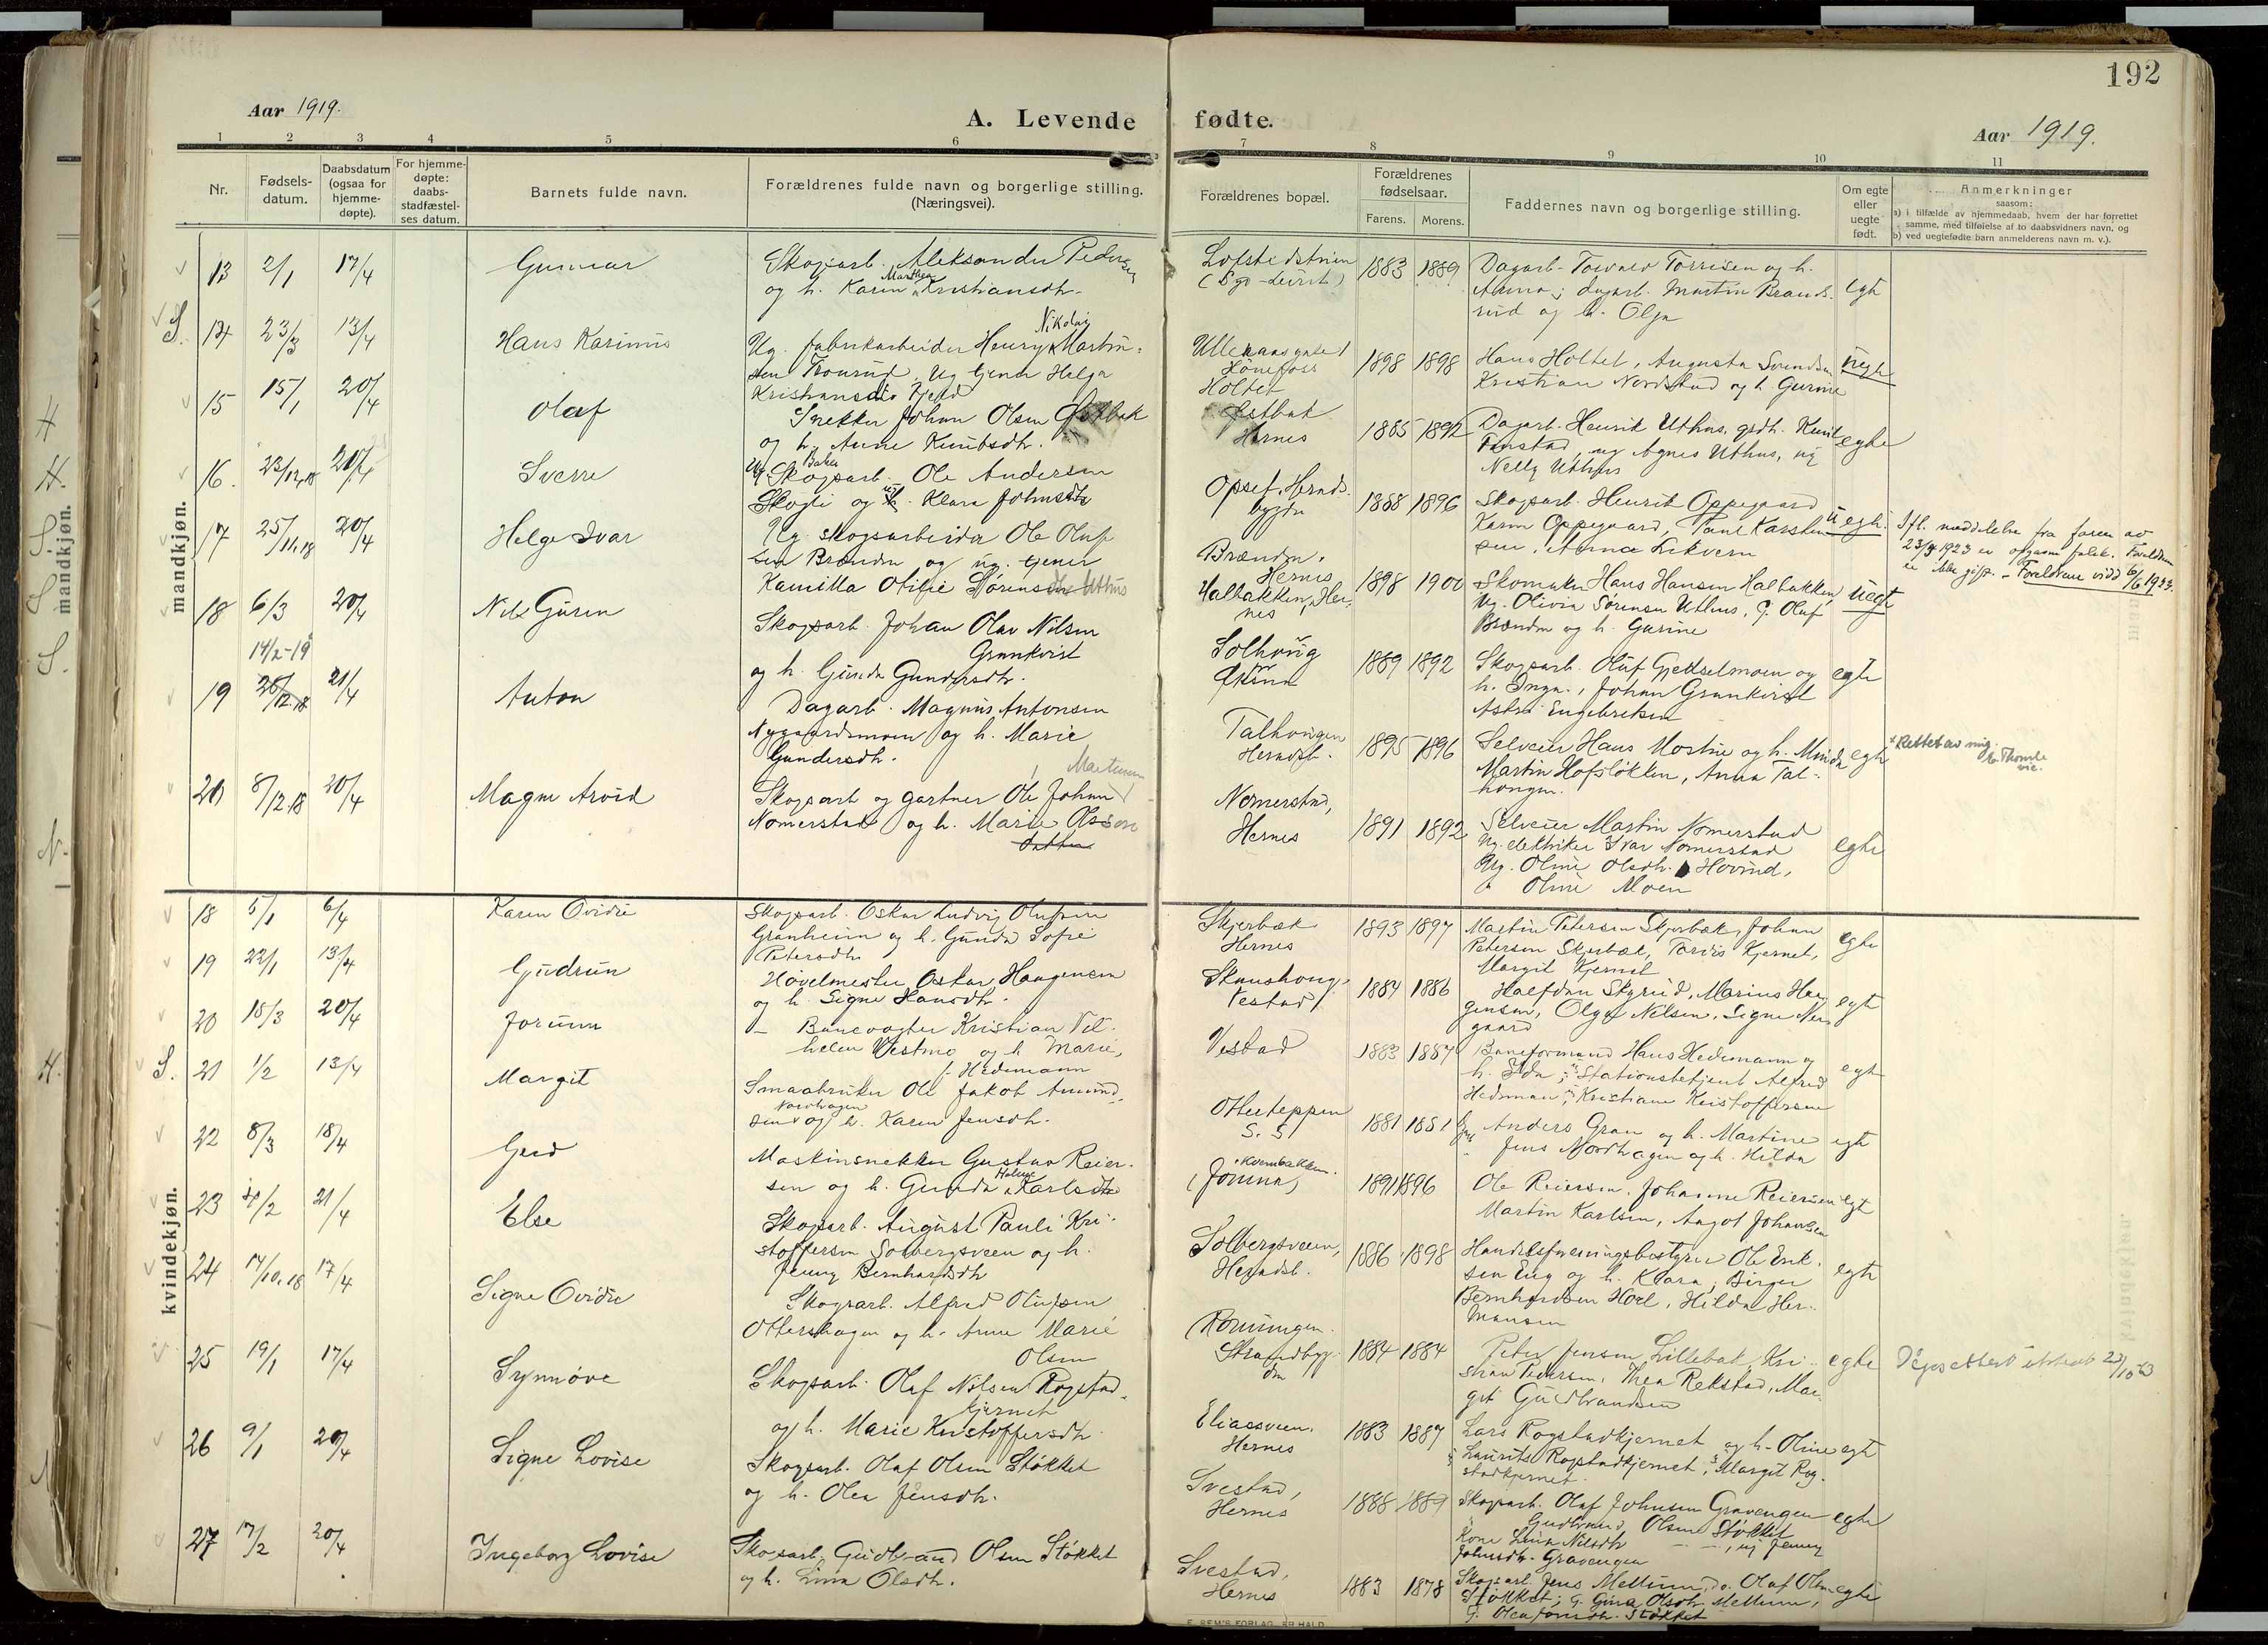 192
Aar 1919.
A. Levende fødte.
Aar 1919.
1 2 3 4 5 6 7 8 9 10 11
Nr.
Fødselsdatum.
Daabsdatum (ogsaa for hjemmedøpte).
For hjemmedøpte: daabsstadfæstelses datum.
Barnets fulde navn.
Forældrenes fulde navn og borgerlige stilling.
(Næringsvei).
Forældrenes bopæl.
Forældrenes fødselsaar.
Farens. Morens.
Faddernes navn og borgerlige stilling.
Om egte eller uegte født.
Anmerkninger
saasom:
a) i tilfælde av hjemmedaab, hvem der har forrettet
samme, med tilføielse af to daabsvidners navn, og
b) ved uegtefødte barn anmelderens navn m. v.).
mandkjøn.
13 2/1 17/4 Gunnar
Skogsarb. Aleksander Pedersen
og h. Karen Marthea Kristiansdtr.
1883 1889
Dagarb. Torvald Torrisen og h.
Anna; dagarb. Martin Brandsrud og h. Olga
egte
S. 14 23/3 13/4 Hans Karinius
Ug. fabrikarbeider Henry Nikolai Martinsen Ug. tjener Helga
Kristiansdtr
Hønefoss
Holtet
1898 1898
Hans Holtet, Augusta Svendsen
Kristian Nordstad og h. Gurine
uegte
15 15/1 20/4 Olaf
Snekker Johan Olsen Østbak
og h. Anne Knutsdtr.
Østbak
Hernes
1885 1892
Dagarb. Henrik Uthus, Knut
ug Agnes Uthus, ug
Nelly Uthus
egte
16. 23/12.18 20/4 Sverre
Ug. Skogsarb. Ole Andersen
Skogli og ug. Klara Johnsdtr
Opset, Hernes
bygda
1888 1896
Skogsarb. Henrik Oppegaard
Karen Oppegaard, Paul Karstensen, Anna Likvern
uegte.
17 25/11.18 20/4 Helge Ivar
Ug. skogsarbeider Ole Olufsen Brænden og ug. tjener
Kamilla Otilie Sørensdtr Uthus
Brænden,
Hernes
Halbakken, Hernes
1898 1900
Skomaker Hans Hansen Halbakken
Ug. Olivia Sørensen Uthus, G. Olaf
Brænden og h. Gurine
uegte
Ifl. meddelelse fra faren av
23/4 1923 er opgaven falsk. Foreldrene
er ikke gift. – Foreldrene viedd 6/6 1923.
18 6/3 20/4 Nils Guren
Skogsarb. Johan Olav Nilsen
Grankvist
og h. Gunda Gundersdtr.
Solhaug
1889 1892
Skogsarb. Oluf Gjedtselmoen og
h. Inga, Johan Grankvist
Astri Engebretsen
egte
14/2-19
19 26/12.18 21/4 Anton
Dagarb. Magnus Antonsen
Nygaardsmoen og h. Marie
Gundersdtr.
Talhaugen
Herndsb.
1895 1896
Selveier Hans Mostue og h. Minda
Martin Hofsløkken, Anna Talhaugen.
egte
Rettet av mig.
Thomle
vic.
20 8/12.18 20/4 Magne Arvid
Skogsarb og gartner Ole Johan Martinsen
Nomerstad og h. Marie Olsson
datter
Nomerstad,
Hernes
1891 1892
Selveier Martin Nomerstad
Ug. elektriker Ivar Nomerstad
Ug. Oline Olsdtr. Hovind,
" Oline Moen
egte
kvindekjøn.
18 5/1 6/4 Karen Ovidie
Skogsarb. Oskar Ludvig Olufsen
Granheim og h. Gunda Sofie
Petersdtr
Skjerbæk
Hernes
1893 1897
Martin Petersen Skjerbæk, Johan
Petersen Skjerbæk, Tordis Kjernet,
Margit Kjernet
egte
19 22/1 13/4 Gudrun
Høvelmester Oskar Haagensen
og h. Signe Hansdtr.
Skaushaug,
Vestad
1884 1886
Halfdan Skyrud, Marius Haagensen, Olga Nilsen, Signe Nergaard
egte
20 18/3 20/4 Jorunn
Banevogter Kristian Vilhelm Vestmo og h. Marie,
f. Hedemann
Vestad
1883 1887
Baneformand Hans Hedemann og
h. Ida; Stationsbetjent Alfred
Hedeman; Kristiane Kristoffersen
egte
S. 21 1/2 13/4 Margit
Smaabruker Ole Jakob Amundsen Nordhagen og h. Karen Jensdtr.
Otterteppen
S. S.
1881 1881
Anders Gran og h. Martine
Jens Nordhagen og h. Hilda
egte
22 8/3 18/4 Gerd
Maskinsnekker Gustav Reiersen og h. Gunda Karlsdtr
Kvernbakken.
(Jømna)
1891 1896
Ole Reiersen, Johanne Reiersen
Martin Karlsen, Aagot Johansen
egte
23 21/4 Else
Skogsarb. August Pauli Kristoffersen Solbergsveen og h.
Jenny Bernhardsdtr
Solbergsveen,
Herndsb.
1886 1898
Handelsforeningsbestyrer Ole Eriksen Eng og h. Klara, Birger
Bernhardsen Hoel, Hilda Hermansen
egte
24 14/10.18 17/4 Signe Ovidie
Skogsarb. Alfred Olufsen
Ottershagen og h. Anne Marie
Olsen
Rønningen.
Strandbygden
1884 1884
Peter Jensen Lillebak, Kristian Pedersen, Thea Rekstad, Margit Gudbrandsen
egte
Døpsattest utstedt 23/10 53
25 19/1 17/4 Synnøve
Skogsarb. Olaf Nilsen Rogstadkjernet
og h. Marie Kristoffersdtr.
Eliassveen,
Hernes
1883 1887
Lars Rogstadkjernet og h. Oline
Laurits Rogstadkjernet, Margit Rogstadkjernet.
egte
26 9/1 20/4 Signe Lovise
Skogsarb. Olaf Olsen Støkket
og h. Olea Jensdtr.
Svestad,
Hernes
1888 1889
Skogsarb. Olaf Johnsen Gravengen
" Gudbrand Olsen Støkket
Kone Lina Nilsdtr – –, ug Jenny
Johnsdtr. Gravengen
egte
27 17/2 20/4 Ingeborg Lovise
Skogsarb. Gudbrand Olsen Støkket
og h. Lina Olsdtr.
Svestad,
Hernes
1883 1878
Skogsarb. Jens Mellum, do. Olaf Olsen
Støkket; G. Gina Olsdtr. Mellum,
G. Olea Jensdtr. Støkket
egte